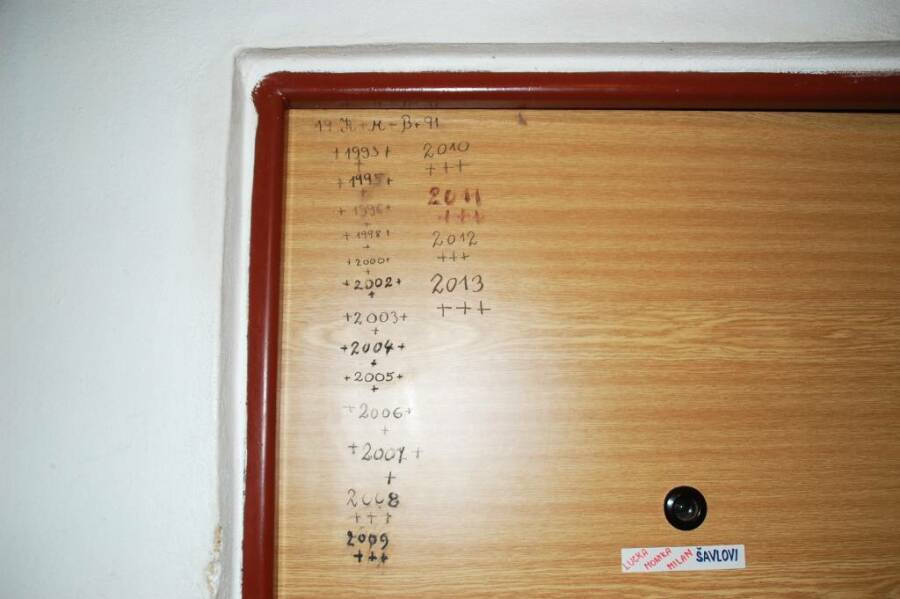 19 K+M+B+91
+1993+
+
+1995+
+
+1996+
+
+1998+
+
+2000+
+
+2002+
+
+2003+
+
+2004+
+
+2005+
+
+2006+
+
+2007+
+
2008
+++
2009
+++
2010
+++
2011
+++
2012
+++
2013
+++
LUCKA MONIKA MILAN ŠAVLOVI